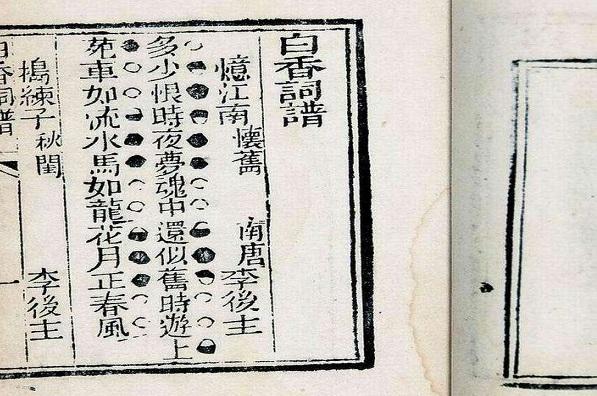 白香詞譜
憶江南 懷舊 南唐李後主
多少恨時夜夢魂中還似舊時遊上
苑車如流水馬如龍花月正春風
搗練子 秋閨 李後主
白香詞譜 一